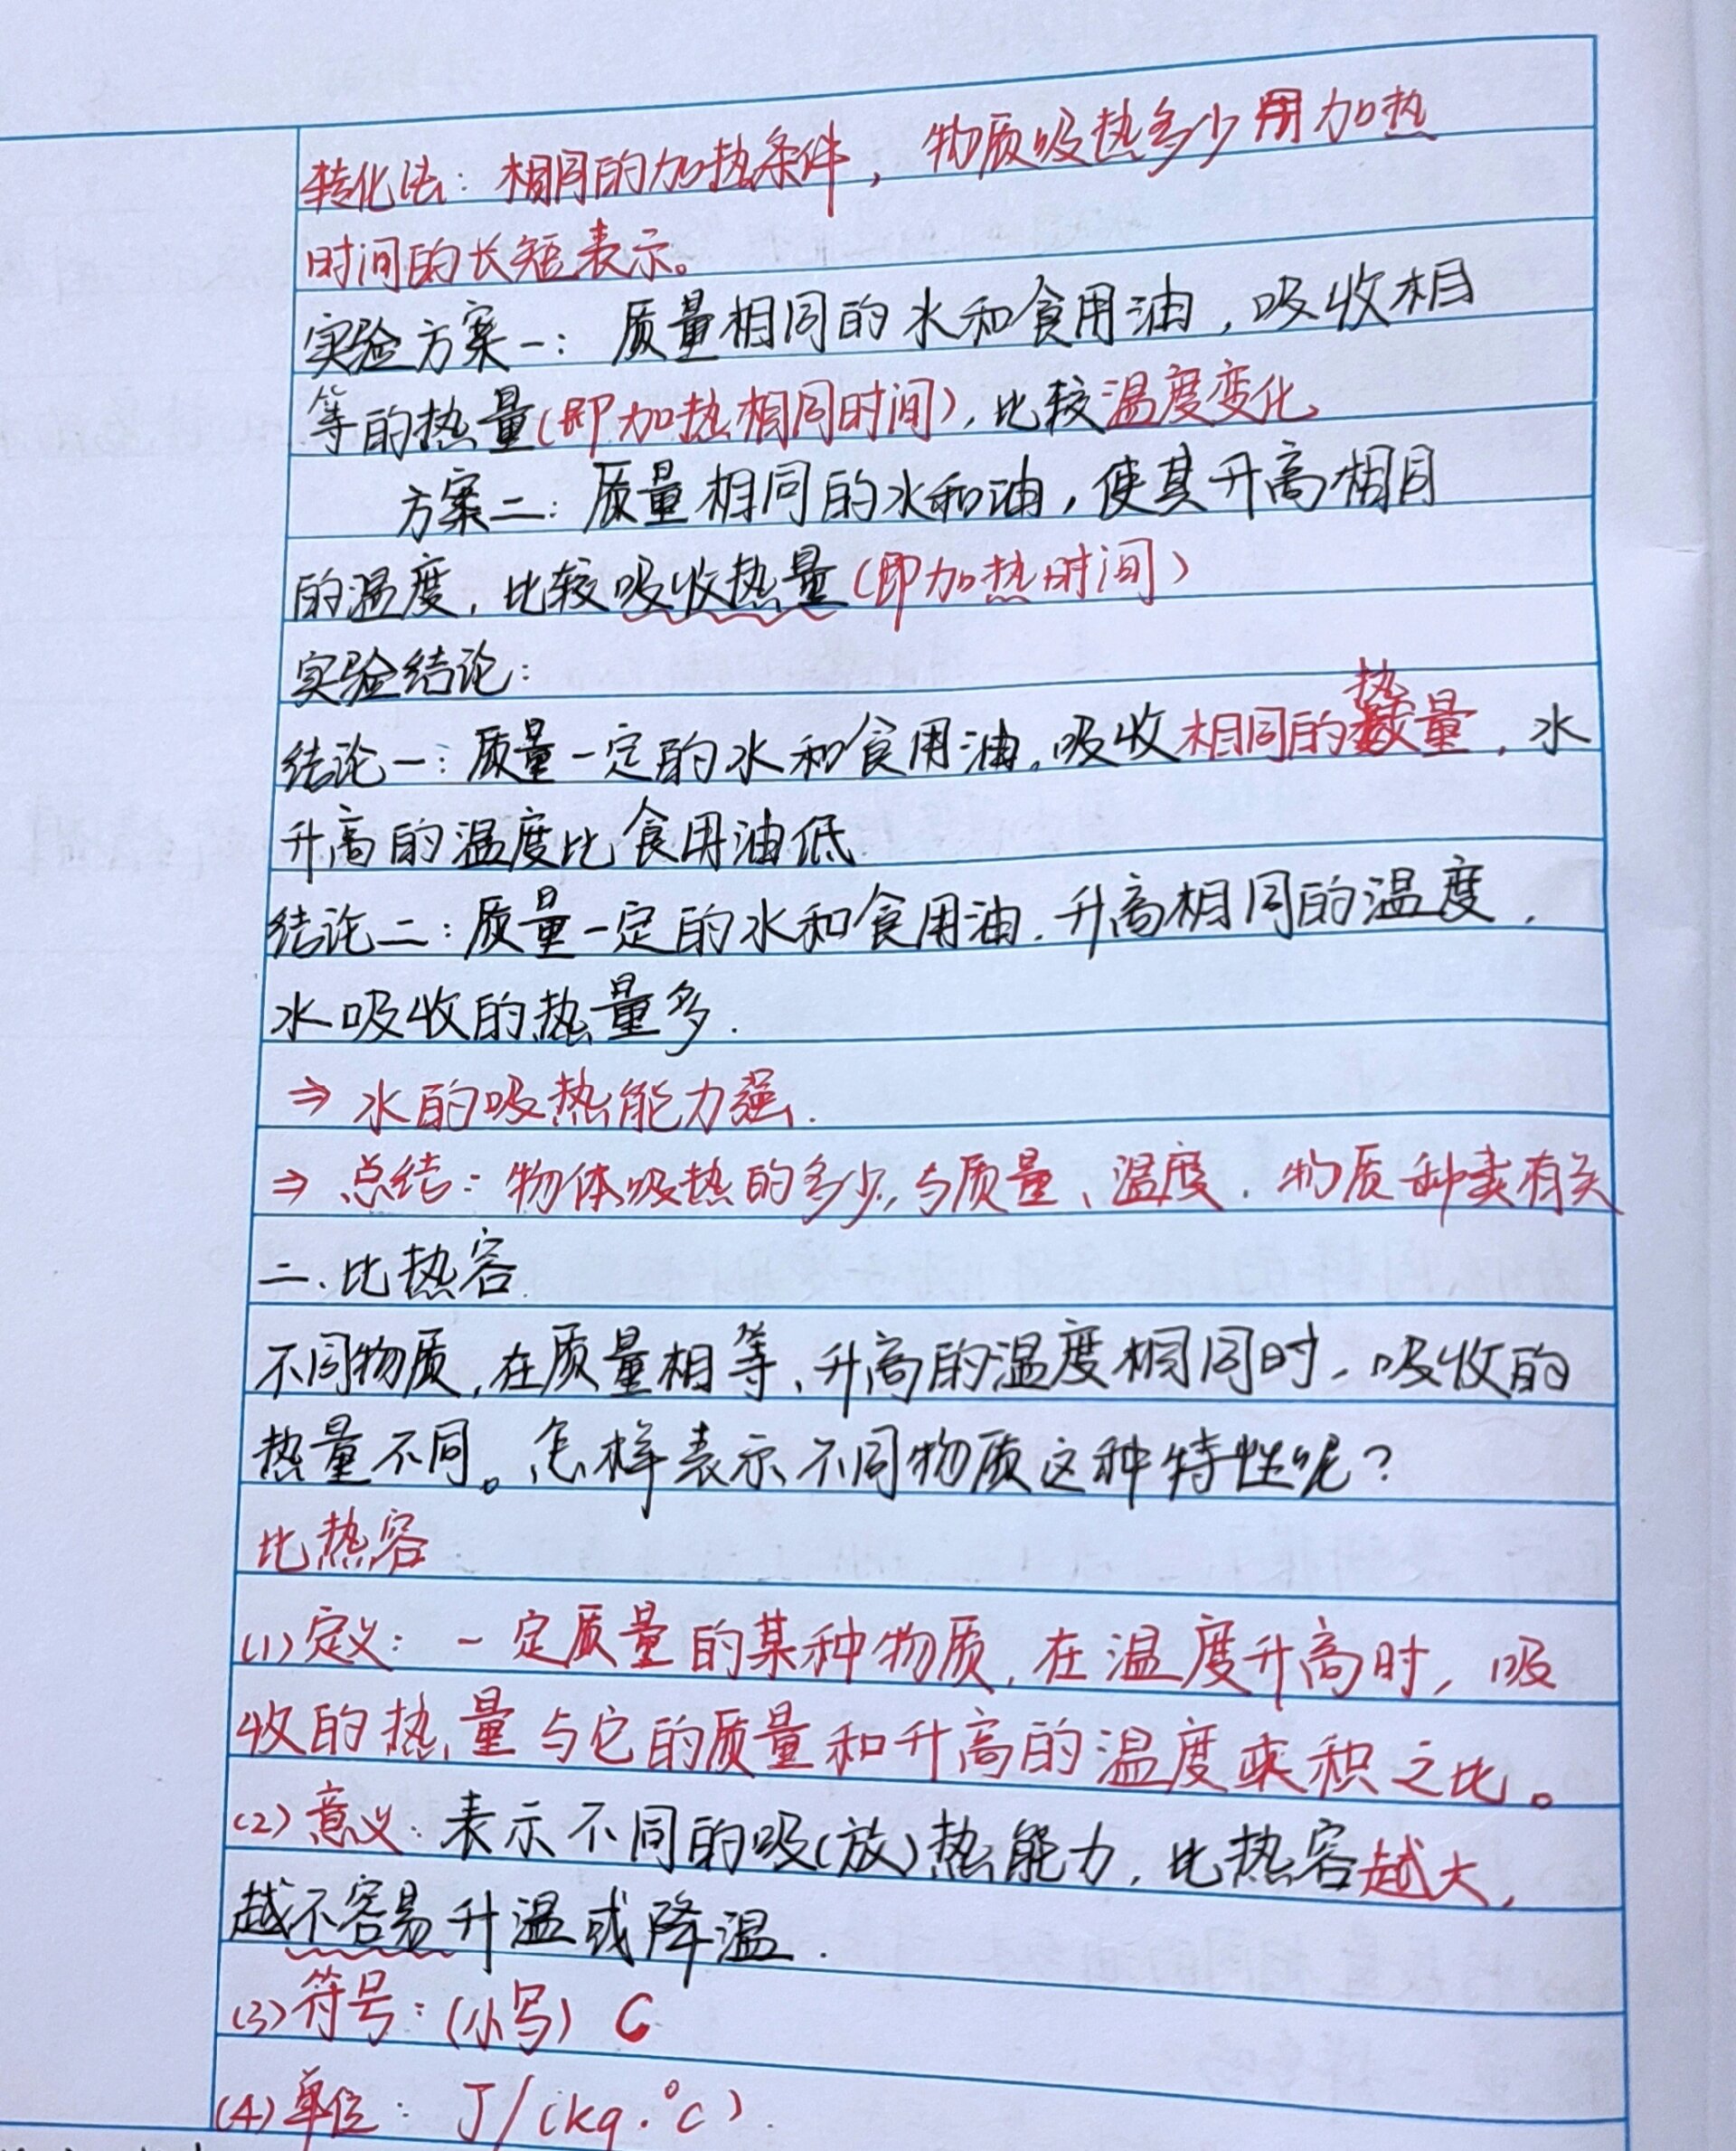 转化法：相同的加热条件，物质吸热多少用加热
时间的长短表示。
实验方案一：质量相同的水和食用油，吸收相
等的热量(即加热相同时间)，比较温度变化
方案二：质量相同的水和油，使其升高相同
的温度，比较吸收热量(即加热时间)
实验结论：
结论一：质量一定的水和食用油，吸收相同的热量，水
升高的温度比食用油低
结论二：质量一定的水和食用油，升高相同的温度，
水吸收的热量多.
⇒ 水的吸热能力强.
⇒ 总结：物体吸热的多少，与质量、温度、物质种类有关
二、比热容
不同物质，在质量相等、升高的温度相同时，吸收的
热量不同。怎样表示不同物质这种特性呢？
比热容
(1)定义：一定质量的某种物质，在温度升高时，吸
收的热量与它的质量和升高的温度乘积之比。
(2)意义：表示不同的吸(放)热能力，比热容越大，
越不容易升温或降温.
(3)符号：(小写) C
(4)单位：J/(kg·℃).